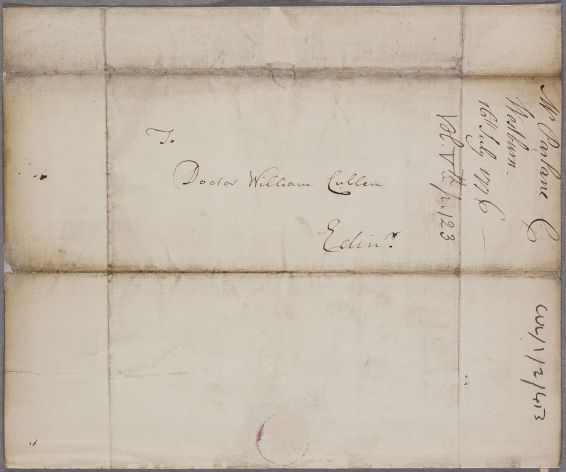 To
Doctor William Cullen
Edinr.
Mr Parlane C
16th July 1776
Vol. V p. 123
CUL/1/2/413